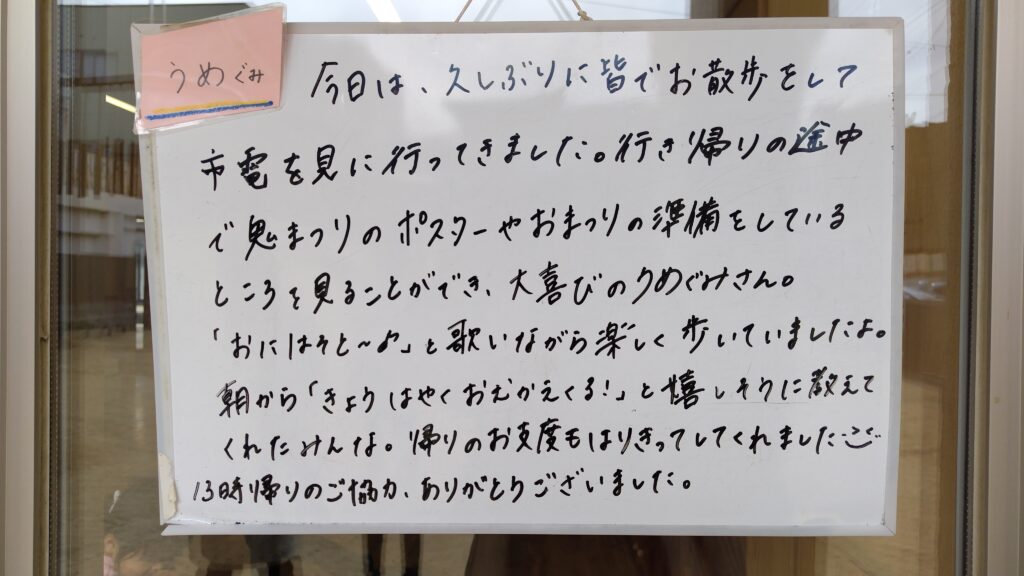 うめぐみ
今日は、久しぶりに皆でお散歩をして
市電を見に行ってきました。行き帰りの途中
で鬼まつりのポスターやおまつりの準備をしている
ところを見ることができ、大喜びのうめぐみさん。
「おにはそと〜♪」と歌いながら楽しく歩いていましたよ。
朝から「きょうはやくおむかえくる!」と嬉しそうに教えて
くれたみんな。帰りのお支度もはりきってしてくれました
13時帰りのご協力、ありがとうございました。